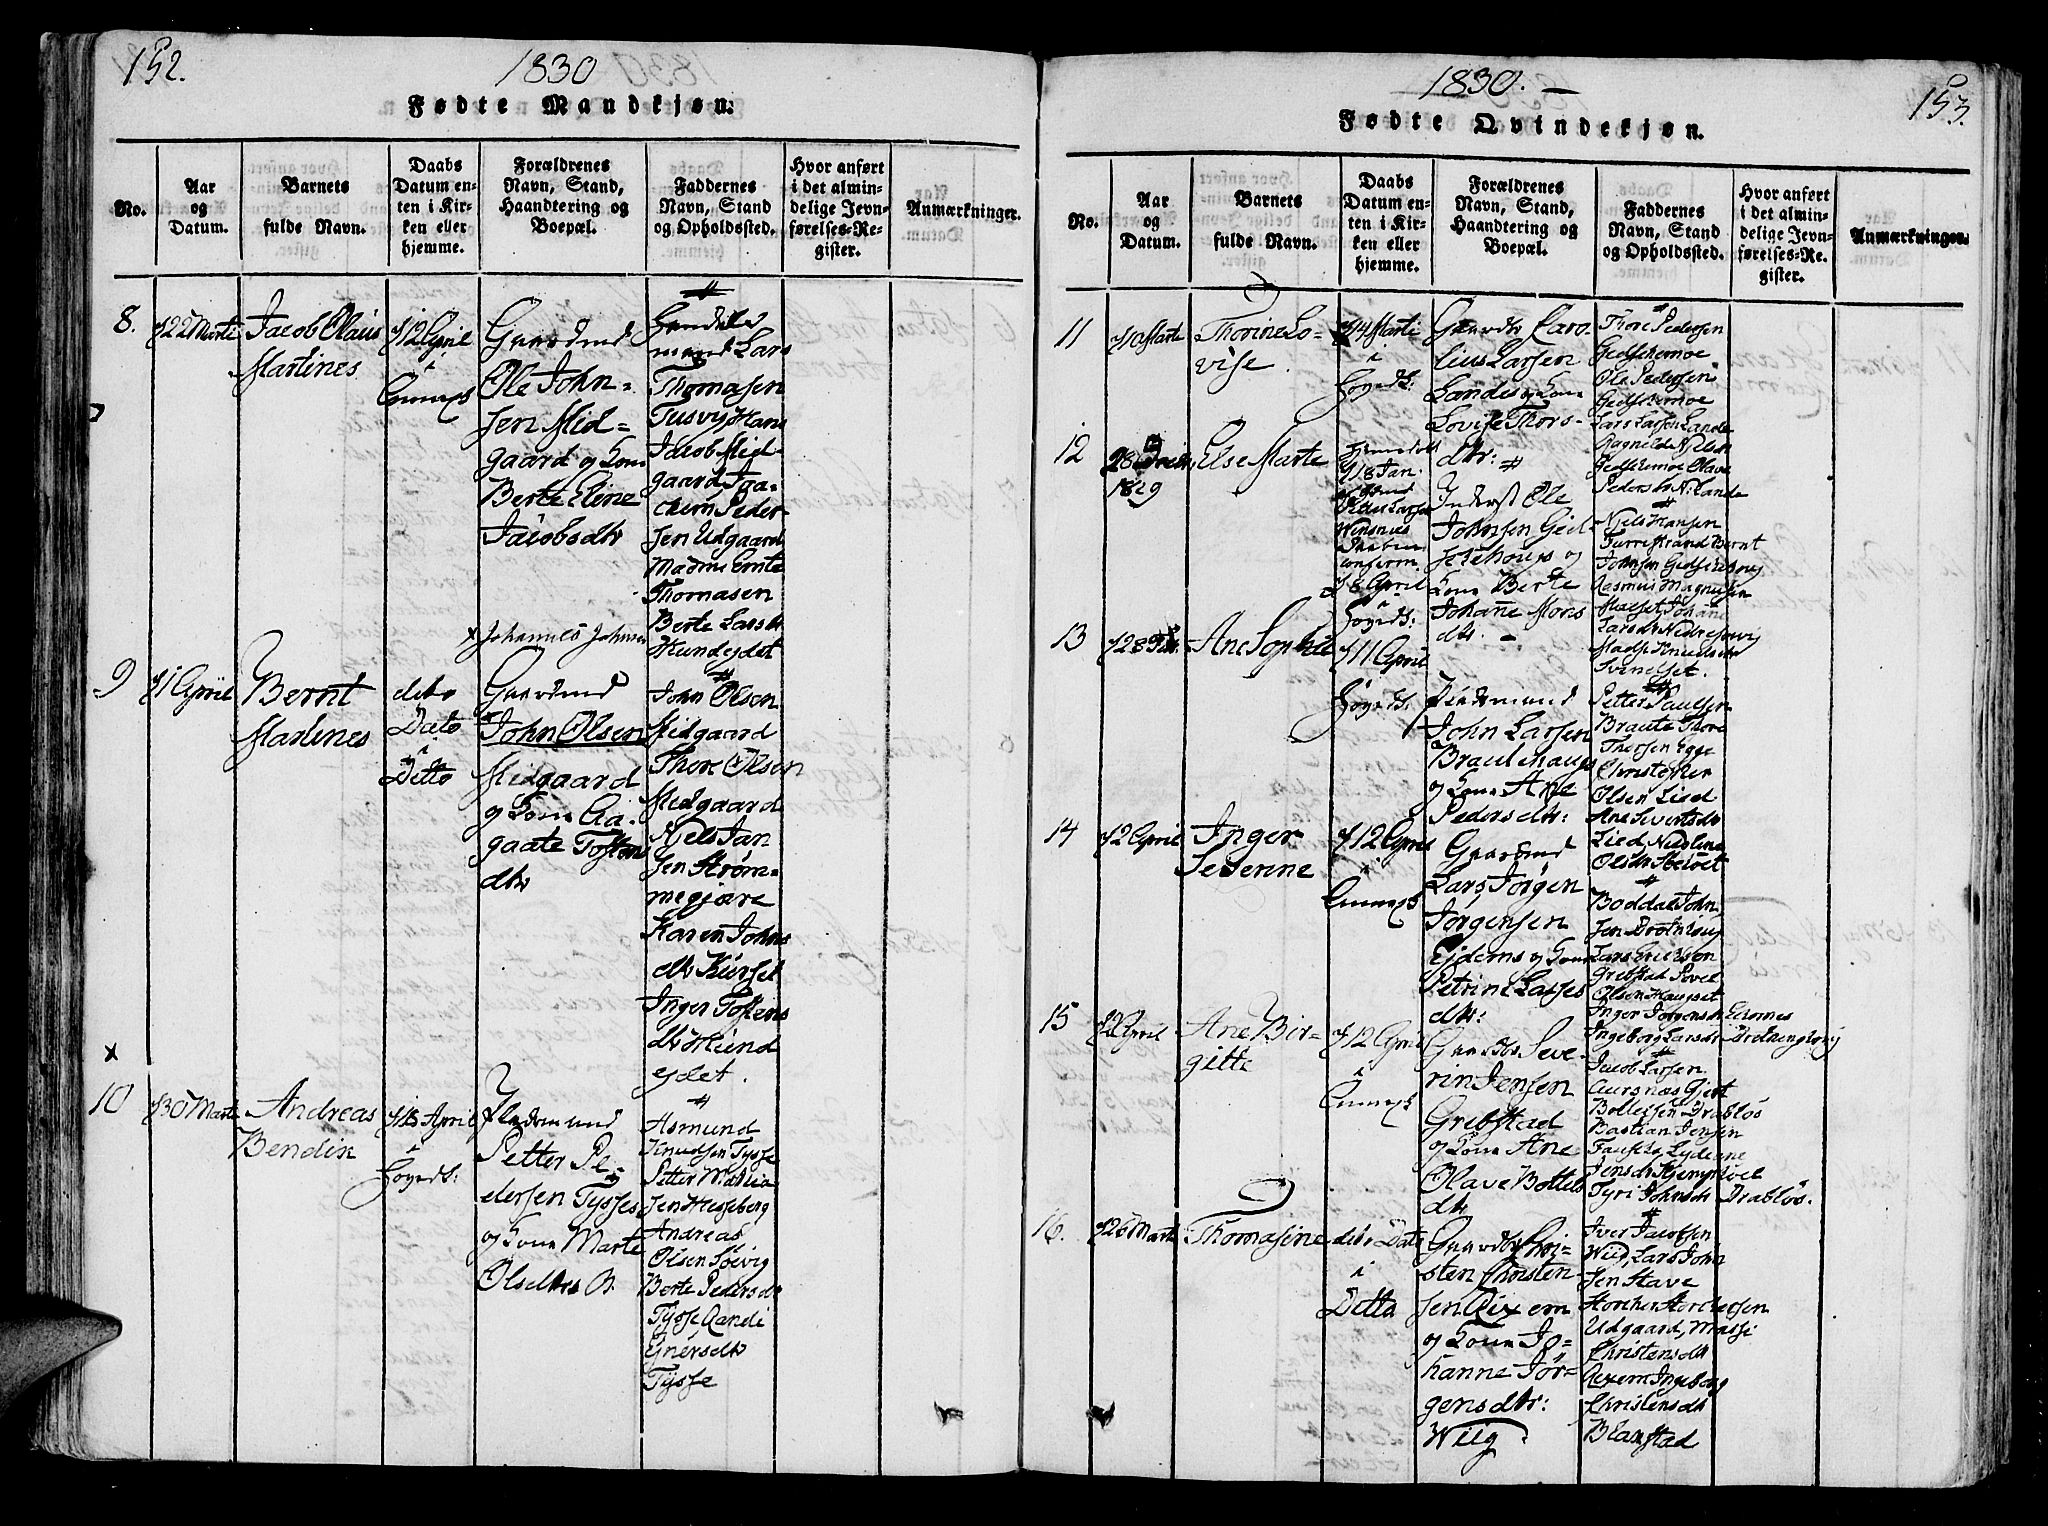 152.
1830
Fødte Mandkjøn.
No.
Aar
og
Datum.
Barnets
fulde Navn.
Daabs
Datum en-
ten i Kir-
ken eller
hjemme.
Forældrenes
Navn, Stand,
Haandtering og
Boepæl.
Faddernes
Navn, Stand
og Opholdssted.
Hvor anført
i det almin-
delige Jevn-
førelses-Re-
gister.
Anmærkninger.
8.
22 Marti
Jacob Olaus
Martines
12 April
i
Annexs
Gaardmd
Ole John-
sen Mid-
gaard og Kone
Berte Eline
Jacobsdtr
mand Lars
Thomasen
Tusvig Hans
Jacob Mid-
gaard Joa-
chim Peder-
sen Udgaard
Madme
Thomasen
Berte Larsdtr
Hundeydet
x Johannes Johnsen
9
1 April
Bernt
Martines
dito
Dato
i
Ditto
Gaardmd
John Olsen
Midgaard
og Kone Aa-
gaate Tosten
dtr
John Olsen
Midgaard
Thore Olsen
Midgaard
Niels Jan
sen Strøm-
megjære
Karen Johns
dtr Kurset
Inger Tostens
dtr Hund
eydet.
x
10
30 Marti
Andreas
Bendix
18 April
i
Pladsmand
Petter Pe-
dersen Tysses
og Kone Marte
Olsdtr
Asmund
Knudsen Tysse
Petter Mathia
sen Hesseberg
Andreas
Olsen Søevig
Berte Pedersdtr
Tysse Randi
Gnersdtr
Tysse
153.
1830.
Fødte Qvindekjøn.
No.
Aar
og
Datum.
Barnets
fulde Navn.
Daabs
Datum en-
ten i Kir-
ken eller
hjemme.
Forældrenes
Navn, Stand,
Haandtering og
Boepæl.
Faddernes
Navn, Stand
og Opholdssted.
Hvor anført
i det almin-
delige Jevn-
førelses-Re-
gister.
Anmærkninger.
11
10 Marte
Thorine Lo-
vise.
14 Marti
i
Gaardbr Caro
lius Larsen
Landes og Kone
Lovise Thors-
dtr:
Thore Pedersen
Gedschemoe
Ole Pedersen
Gedschemoe
Lars Larsen Lande
Ragnilde Nielsen
Gedschemoe Olave
Pedersdtr N: Lande
12
28
1829
Else Marte
18 Jan.
Winsnes
confirm.
8 April
Inderst Ole
Johnsen Ged-
schehougs og
Kone Berte
Johanne Mons
dtr.
Niels Hansen
Furrestrand Bernt
Johnsen
Rasmus Magnusen
Malset Johane
Larsdtr
Madse Knudsdtr
Svinelset.
13
28 Feb.
Ane Sophie
11 April
Pladsmand
John Larsen
Brautehaugs
og Kone Ane
Pedersdtr:
Petter Paulsen
Braute Thore
Thorsen Egge
Christopher
Olsen Lied
Ane Sivertsdtr
Lied
14
2 April
Inger
Severine
12 April
i
Annexs
Gaardmd
Lars Jørgen
Jørgensen
Ejdems og Kone
Petrine Larses
dtr:
Boddal John
sen Drotning
Lars Ericksen
Grebstad Povel
Olsen Haugset
Inger Jørgensdtr
Ingeborg Larsdtr Drotninghoug
15
2 April
Ane Bir-
gitte
12 April
i
Annexs
Gaardbr Seve-
rin Jensen
Grebstad
og Kone Ane
Olave Bottels
dtr
Jacob Larsen
Aursnæs Gjert
Bottelsen Drabløs
Bastian Jensen
Jensdtr
Tyri Johnsdtr Drabløs.
16.
26 Marte
Thomasine
dito Dato
i
Ditto
Gaardbr Chri-
sten Christen-
sen Rixem
og Kone Jo-
hanne Jør-
gensdtr:
Wiig
Iver Jacobsen
Wiig, Lars John
sen Stave
Udgaard, Massi
Christensdtr
Rixem Ingeborg
Christensdtr
Blanstad